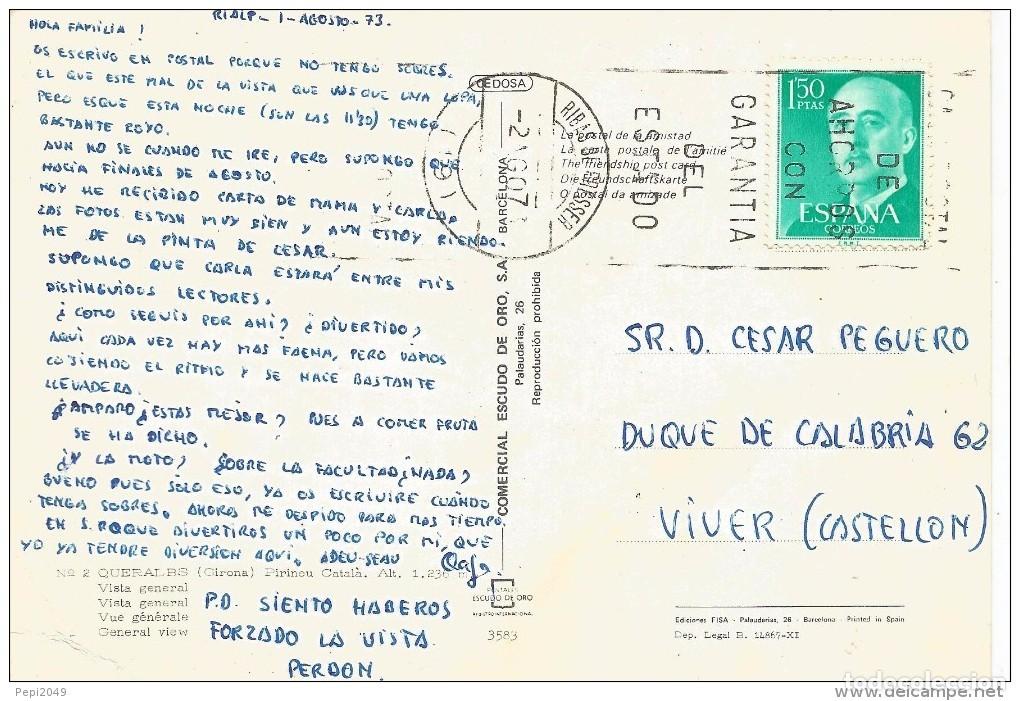 RIALP - 1 - AGOSTO - 73.
HOLA FAMILIA!
OS ESCRIVO EN POSTAL PORQUE NO TENGO SOBRES.
EL QUE ESTE MAL DE LA VISTA QUE BUSQUE UNA LUPA,
PERO ESQUE ESTA NOCHE (SON LAS 11'30) TENGO
BASTANTE ROYO.
AUN NO SE CUANDO ME IRE, PERO SUPONGO QUE
HACIA FINALES DE AGOSTO.
HOY HE RECIBIDO CARTA DE MAMA Y CARLA.
LAS FOTOS ESTAN MUY BIEN Y AUN ESTOY RIENDO-
ME DE LA PINTA DE CESAR.
SUPONGO QUE CARLA ESTARÁ ENTRE MIS
DISTINGUIDOS LECTORES.
¿COMO SEGUIS POR AHI? ¿DIVERTIDO?
AQUI CADA VEZ HAY MAS FAENA, PERO VAMOS
COGIENDO EL RITMO Y SE HACE BASTANTE
LLEVADERA.
¿AMPARO ¿ESTAS MEJOR? PUES A COMER FRUTA
SE HA DICHO.
¿Y LA MOTO? SOBRE LA FACULTAD ¿NADA?
BUENO PUES SOLO ESO, YA OS ESCRIVIRE CUANDO
TENGA SOBRES. AHORA ME DESPIDO PARA MAS TIEMPO.
EN S. ROQUE DIVERTIROS UN POCO POR MI, QUE
YO YA TENDRE DIVERSION AQUI. ADEU-SEAU
Nº 2 QUERALBS (Girona) Pirineu Català. Alt. 1.236 m.
Vista general
Vista general
Vue générale
General view
P.D. SIENTO HABEROS
FORZADO LA VISTA.
PERDON.
CEDOSA
COMERCIAL ESCUDO DE ORO, S.A. BARCELONA
Palaudarias, 26
Reproducción prohibida
POSTALES
ESCUDO DE ORO
REGISTRO INTERNACIONAL
3583
La postal de la amistad
La carte postale de l'amitié
The friendship post card
Die freundschaftskarte
O postal da amizade
RIBAS DE FRESSER
AHORRO
CON
DE
GARANTIA
DEL
ESTADO
1'50
PTAS
ESPAÑA
CORREOS
SR. D. CESAR PEGUERO
DUQUE DE CALABRIA 62
VIVER (CASTELLON)
Ediciones FISA - Palaudarias, 26 - Barcelona - Printed in Spain
Dep. Legal B. 14867-XI
Pepi2049
todocoleccion
www.delcampe.net